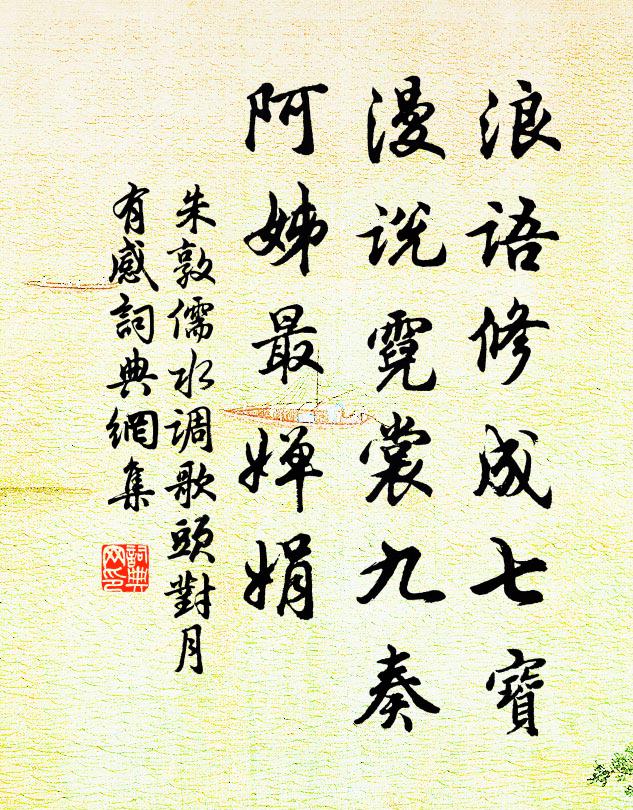 浪語修成七寶
漫说霓裳九奏
阿姊最嬋娟
朱敦儒水调歌頭對月
有感詞典網集
詞典
网印